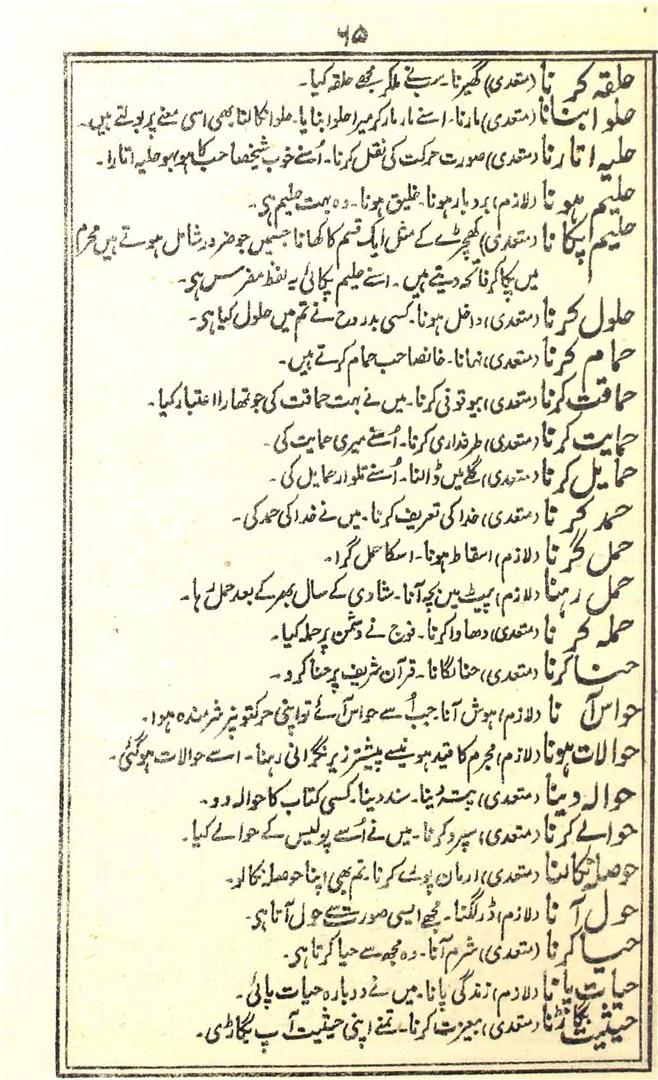 ۶۵
حلقہ کرنا (متعدی) گھیرنا۔ سب نے ملکر مجھے حلقہ کیا۔
حلوا بنانا (متعدی) مارنا۔ اسنے مار مار کر میرا حلوا بنایا۔ حلوا نکالنا بھی اسی معنے پر بولتے ہیں۔
حلیہ اتارنا (متعدی) صورت حرکت کی نقل کرنا۔ اُسنے خوب شیخصاحب کا ہو بہو حلیہ اتارا۔
حلیم ہونا (لازم) بردبار ہونا۔ خلیق ہونا۔ وہ بہت حلیم ہی۔
حلیم پکانا (متعدی) کھچڑے کے مثل ایک قسم کا کھانا جسمیں جو ضرور شامل ہوتے ہیں محرم
میں پکا کرنا کہ دیتے ہیں۔ اسنے حلیم پکائی یہ لفظ مفرس ہی۔
حلول کرنا (متعدی) داخل ہونا۔ کسی بدروح نے تم میں حلول کیا ہی۔
حمام کرنا (متعدی) نہانا۔ خانصاحب حمام کرتے ہیں۔
حماقت کرنا (متعدی) بیوقوفی کرنا۔ میں نے بہت حماقت کی جو تمھارا اعتبار کیا۔
حمایت کرنا (متعدی) طرفداری کرنا۔ اُسنے میری حمایت کی۔
حمایل کرنا (متعدی) گلے میں ڈالنا۔ اُسنے تلوار حمایل کی۔
حمد کرنا (متعدی) خدا کی تعریف کرنا۔ میں نے خدا کی حمد کی۔
حمل گرنا (لازم) اسقاط ہونا۔ اسکا حمل گرا۔
حمل رہنا (لازم) پیٹ میں بچہ آنا۔ شادی کے سال بھر کے بعد حمل رہا۔
حملہ کرنا (متعدی) دھاوا کرنا۔ فوج نے دشمن پر حملہ کیا۔
حنا کرنا (متعدی) حنا لگانا۔ قرآن شریف پر حنا کرو۔
حواس آنا (لازم) ہوش آنا۔ جب اُسے حواس آئے تو اپنی حرکتونپر شرمندہ ہوا۔
حوالات ہونا (لازم) مجرم کا قید ہونیسے پیشتر زیر نگرانی رہنا۔ اسے حوالات ہو گئی۔
حوالہ دینا (متعدی) پتہ دینا۔ سند دینا۔ کسی کتاب کا حوالہ دو۔
حوالے کرنا (متعدی) سپرد کرنا۔ میں نے اُسے پولیس کے حوالے کیا۔
حوصلہ نکالنا (متعدی) ارمان پورے کرنا۔ تم بھی اپنا حوصلہ نکالو۔
حول آنا (لازم) ڈر لگنا۔ مجھے ایسی صورت سے حول آتا ہی۔
حیا کرنا (متعدی) شرم آنا۔ وہ مجھ سے حیا کرتا ہی۔
حیات پانا (لازم) زندگی پانا۔ میں نے دوبارہ حیات پائی۔
حیثیت بگاڑنا (متعدی) بیعزت کرنا۔ تمنے اپنی حیثیت آپ بگاڑی۔